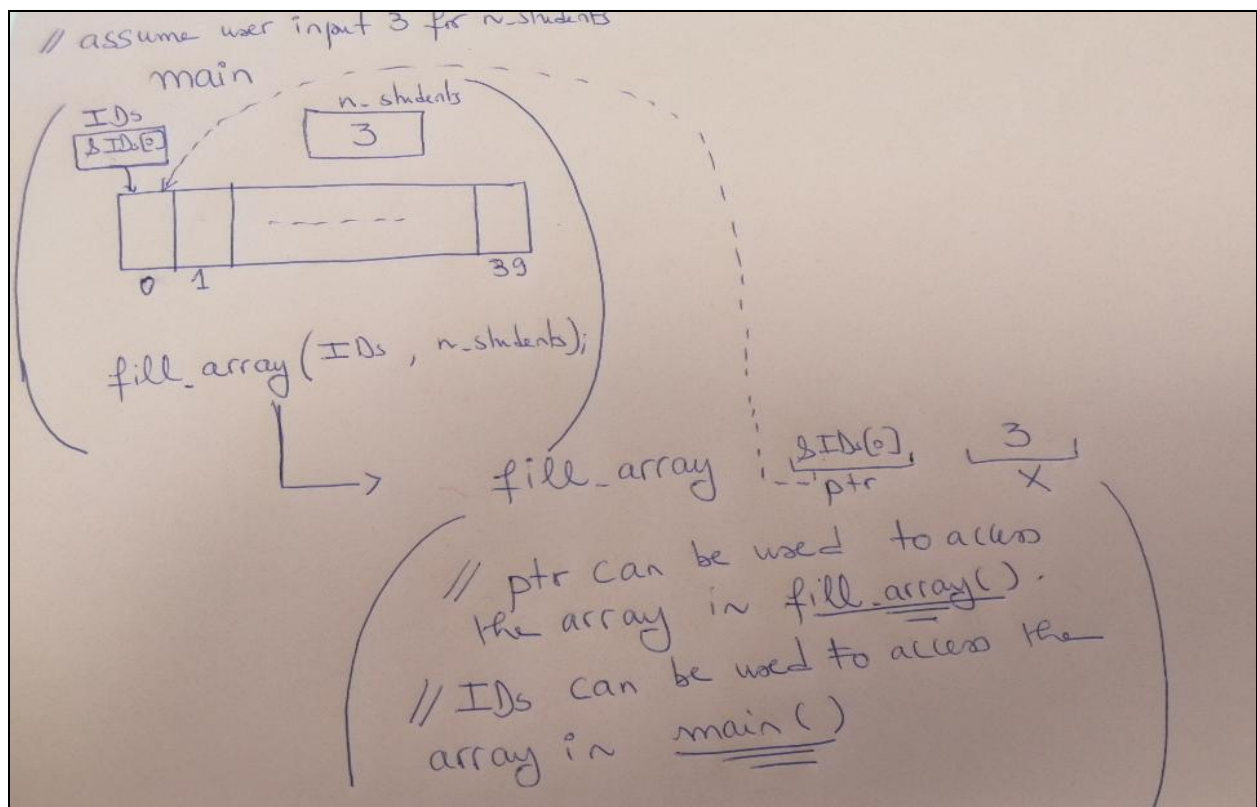 // assume user input 3 for n_students
main
IDs
&IDs[0]
n_students
3
0 1 39
fill_array(IDs, n_students);
fill_array &IDs[0] 3
ptr X
// ptr can be used to access
the array in fill_array().
// IDs can be used to access the
array in main()